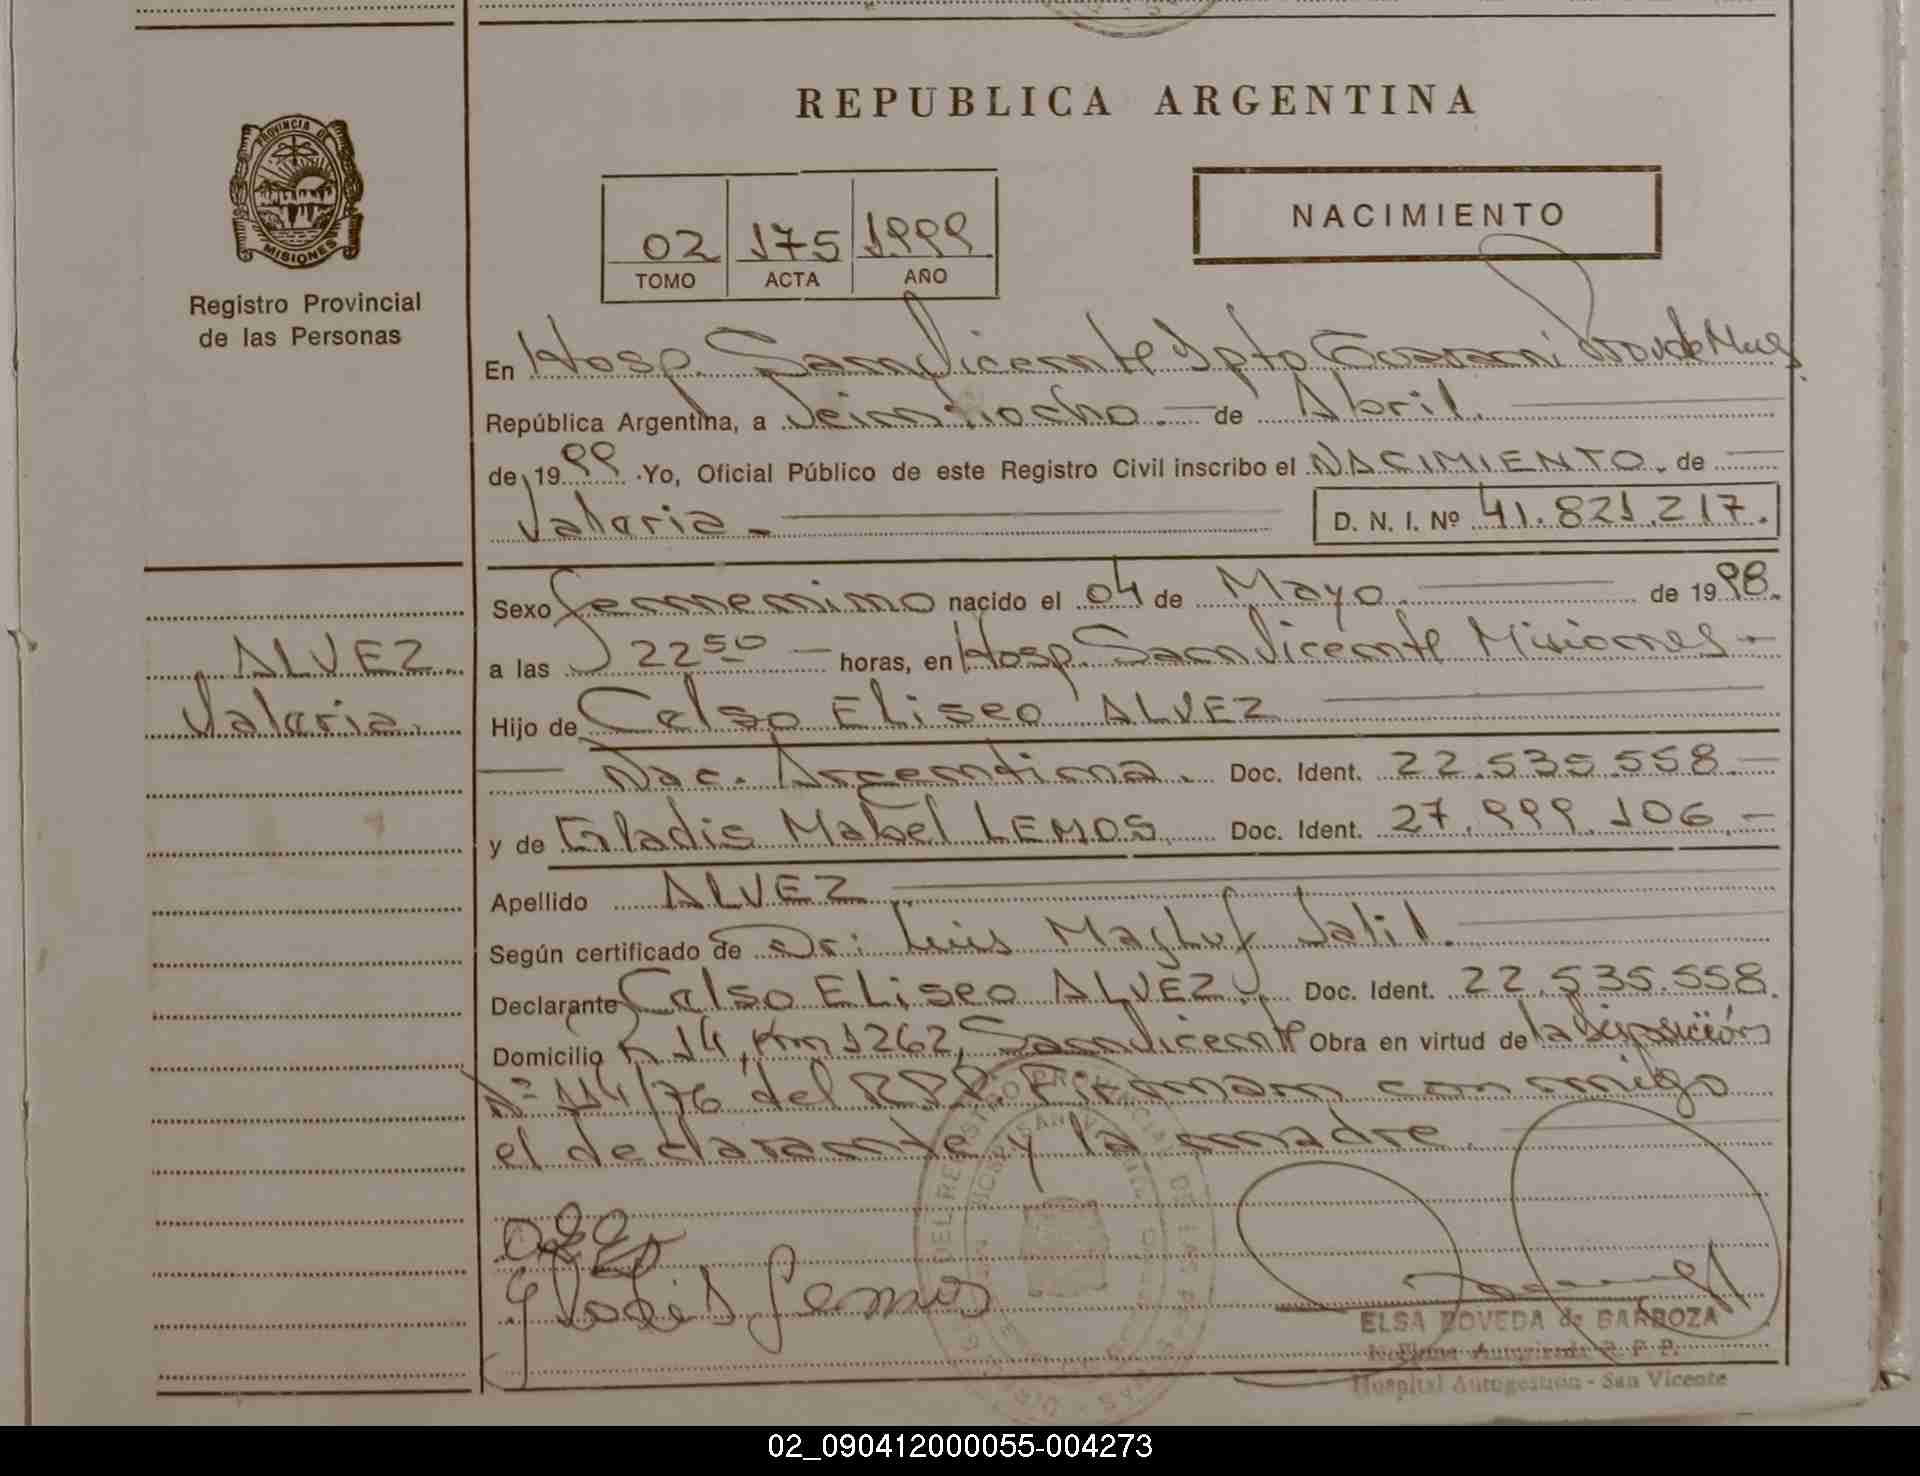 REPUBLICA ARGENTINA
PROVINCIA DE
MISIONES
Registro Provincial
de las Personas
02 175 1999
TOMO ACTA AÑO
NACIMIENTO
En Hosp. San Vicente Dpto Guarani Prov de Mnes.
República Argentina, a Veintiocho.— de Abril.
de 1999. Yo, Oficial Público de este Registro Civil inscribo el NACIMIENTO. de
Valaria.— D. N. I. Nº 41.821.217.
Sexo femenino nacido el 04 de Mayo. de 1998.
a las 22 50 — horas, en Hosp. San Vicente Misiones—
ALVEZ.
Valaria.
Hijo de Celso Eliseo ALVEZ
— Nac. Argentina. Doc. Ident. 22.535.558.—
y de Gladis Mabel LEMOS Doc. Ident. 27.999.106.—
Apellido ALVEZ
Según certificado de Dr: Luis Mayluf Jalil.
Declarante Celso Eliseo ALVEZ. Doc. Ident. 22.535.558.
Domicilio R 14, Km 1262, San Vicente Obra en virtud de la Disposición
Nº 114/76 del RPP. Firman conmigo
el declarante y la madre.
Gladis Lemos
ELSA BOVEDA de BARBOZA
Autorizada R. P. P.
Hospital Autogestión - San Vicente
02_090412000055-004273